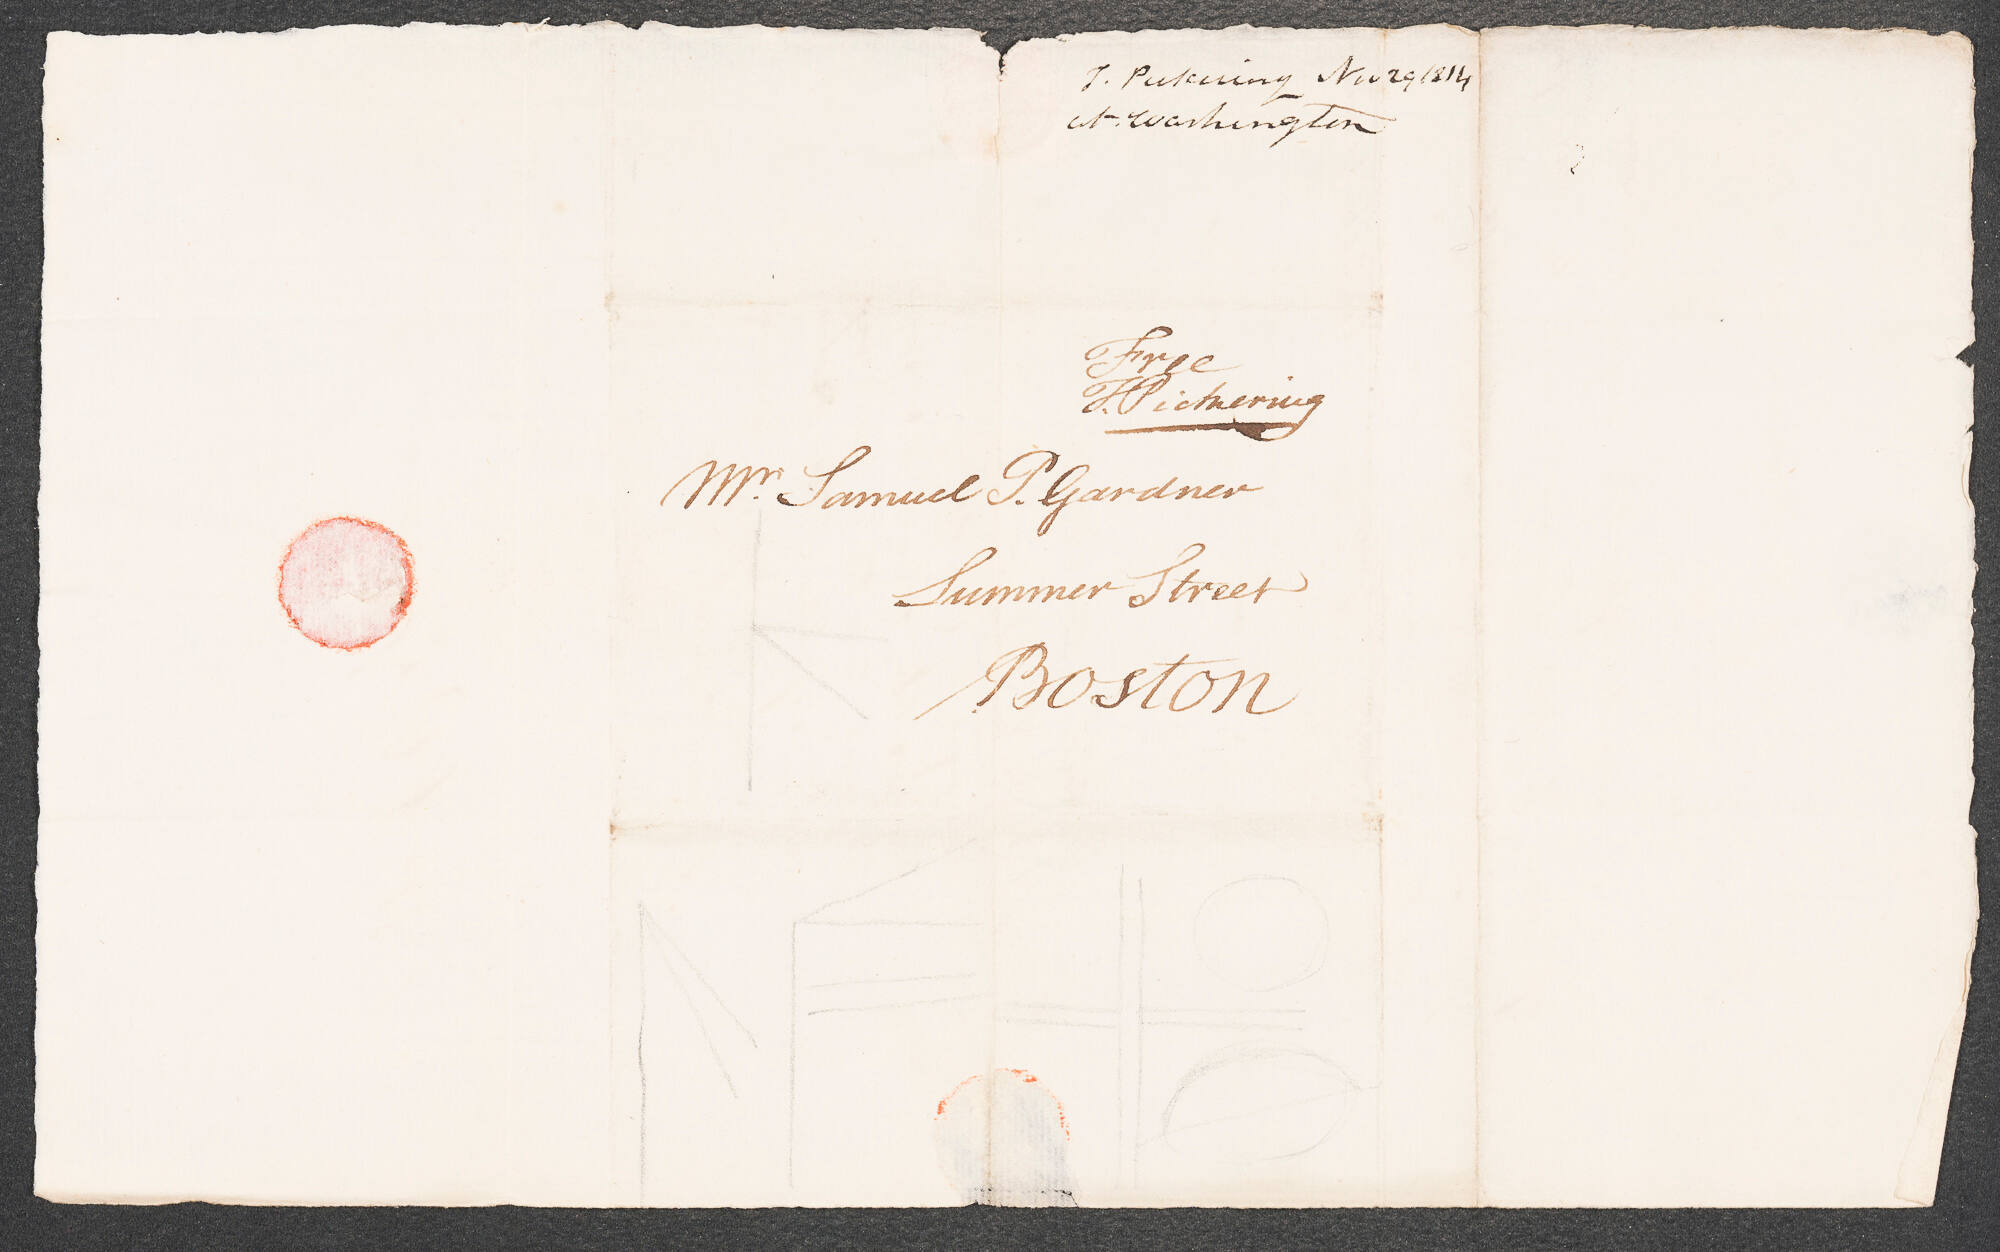 T. Pickering Nov 29 1814
at Washington
Free
T. Pickering
Mr. Samuel P. Gardner
Summer Street
Boston